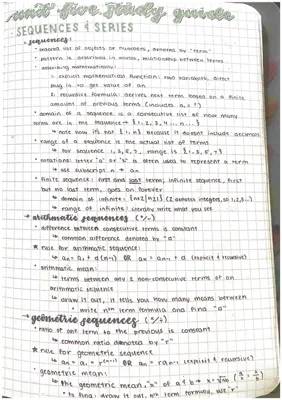 unit five study guide
SEQUENCES & SERIES
→ sequences:
• ordered list of objects or numbers, denoted by "term"
• pattern is described in words, relationship between terms
• describing mathematically:
1. explicit mathematical function: two variables, direct
plug in to get value of an
2. recursive formula: derives next term based on a finite
amount of previous terms (includes a1 = ?)
• domain of a sequence is a consecutive list of how many
terms are in the sequence → {1, 2, 3, 4 ... n...}
↳ note how it's not [1, n] because it doesnt include decimals
• range of a sequence is the actual list of terms
↳ for sequence 1, 3, 5, 7, range is {1, 3, 5, 7}
• notations: letter "a" or "s" is often used to represent a term
↳ use subscript n → an
• finite sequence: first and last term; infinite sequence, first
but no last term, goes on forever
↳ domain of infinite: {n≥1|nεZ} (Z denotes integers, so 1,2,3...)
↳ range of infinite: literally write what you see
→ arithmetic sequences (+/-)
• difference between consecutive terms is constant
↳ common difference denoted by "d"
★ rule for arithmetic sequence:
↳ an = a1 + d(n-1) OR an = an-1 + d (explicit & recursive)
• arithmetic mean:
↳ terms between any 2 non-consecutive terms of an
arithmetic sequence
↳ draw it out, it tells you how many means between
• write nth term formula and find "d"
→ geometric sequences (×/÷)
• ratio of one term to the previous is constant
↳ common ratio denoted by "r"
★ rule for geometric sequence
↳ an = a1 · r^(n-1) OR an = r·an-1 (explicit & recursive)
• geometric mean:
↳ the geometric mean "x" of a & b → x = √ab
• to find: draw it out, nth term formula, use "r"